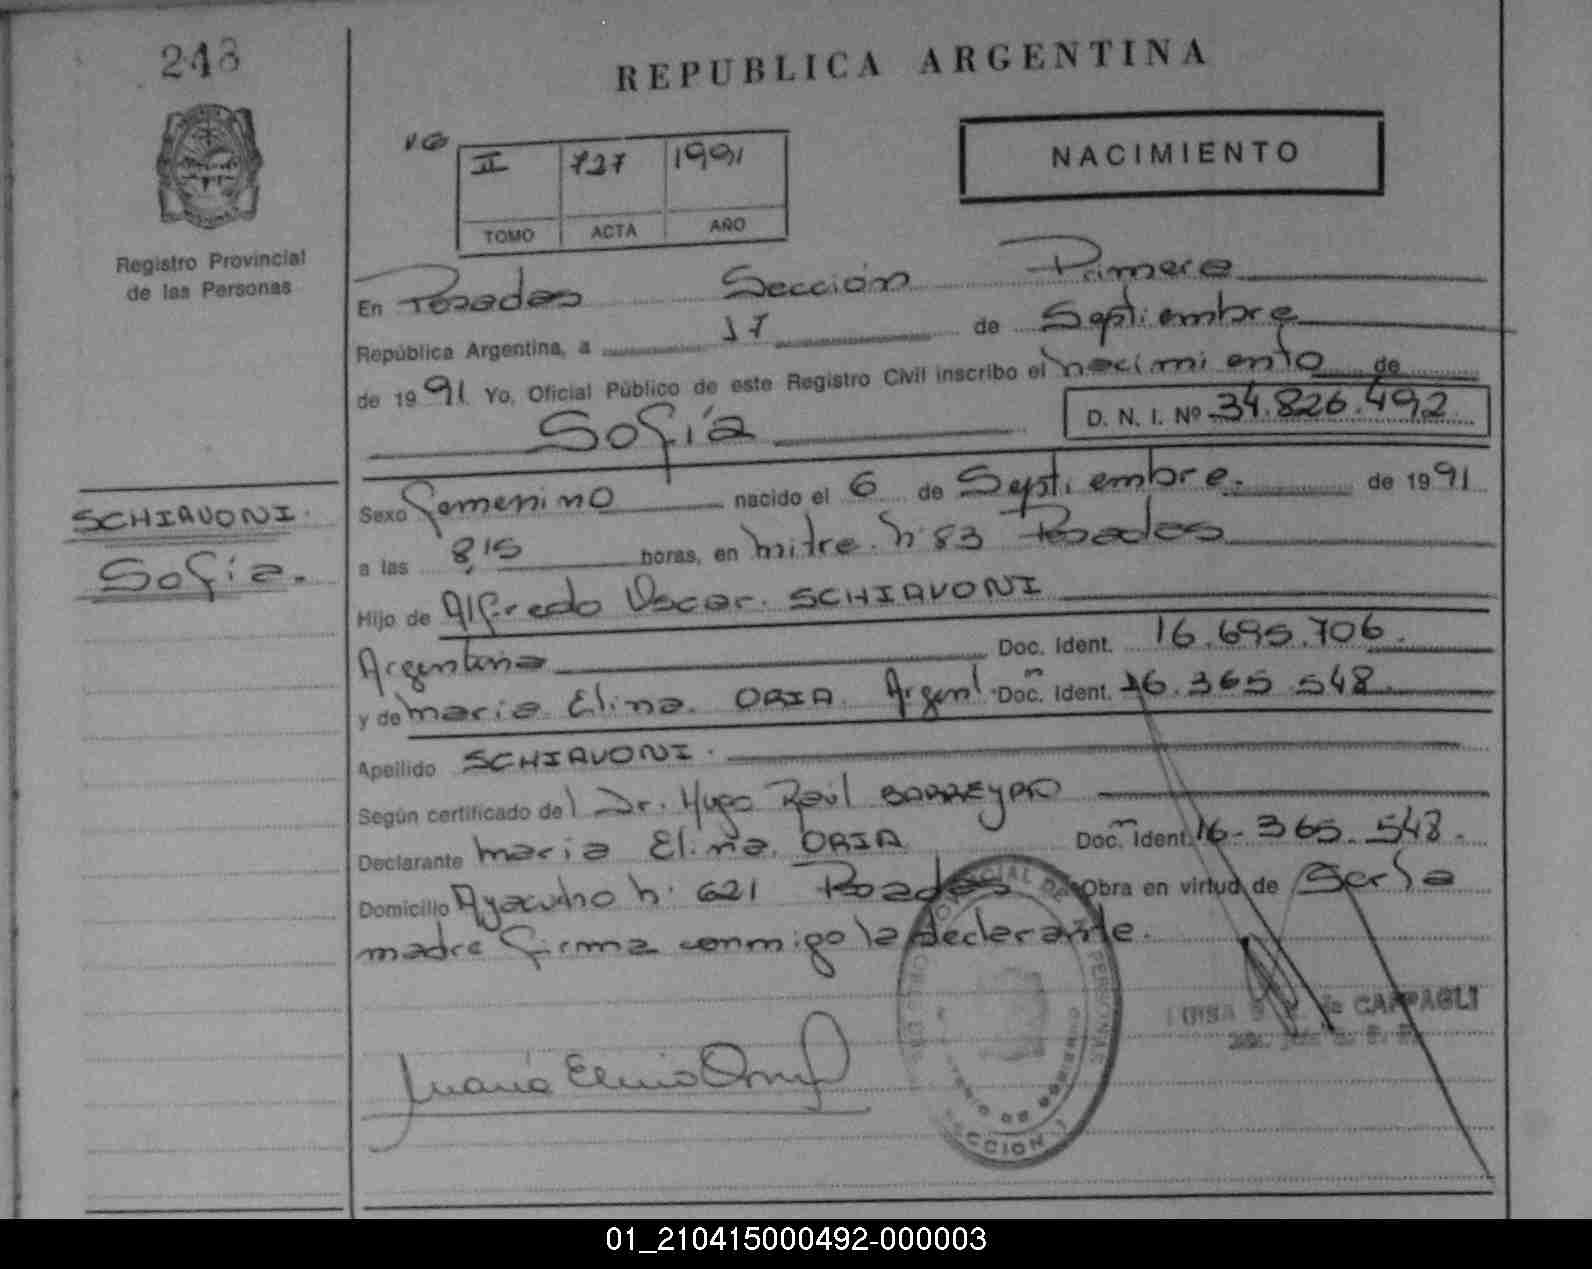 243
REPUBLICA ARGENTINA
Registro Provincial
de las Personas
II 727 1991
TOMO ACTA AÑO
NACIMIENTO
En Posadas Sección Primera
República Argentina, a 17 de Septiembre
de 1991 Yo, Oficial Público de este Registro Civil inscribo el nacimiento de
Sofía D. N. I. Nº 34.826.492
SCHIAVONI.
Sofía.
Sexo femenino nacido el 6 de Septiembre. de 1991
a las 8,15 horas, en mitre. nº 83 Posadas
Hijo de Alfredo Oscar. SCHIAVONI
Argentina Doc. Ident. 16.695.706.
y de maria Elina. ORIA. Argent. Doc. Ident. 16.365 548.
Apellido SCHIAVONI.
Según certificado del Dr. Hugo Raúl BARREYRO
Declarante maria Elina. ORIA Doc. Ident. 16-365.548.
Domicilio Ayacucho nº 621 Posadas Obra en virtud de ser la
madre firma conmigo la declarante.
LUISA de CAPPAGLI
SECCION 1
01_210415000492-000003